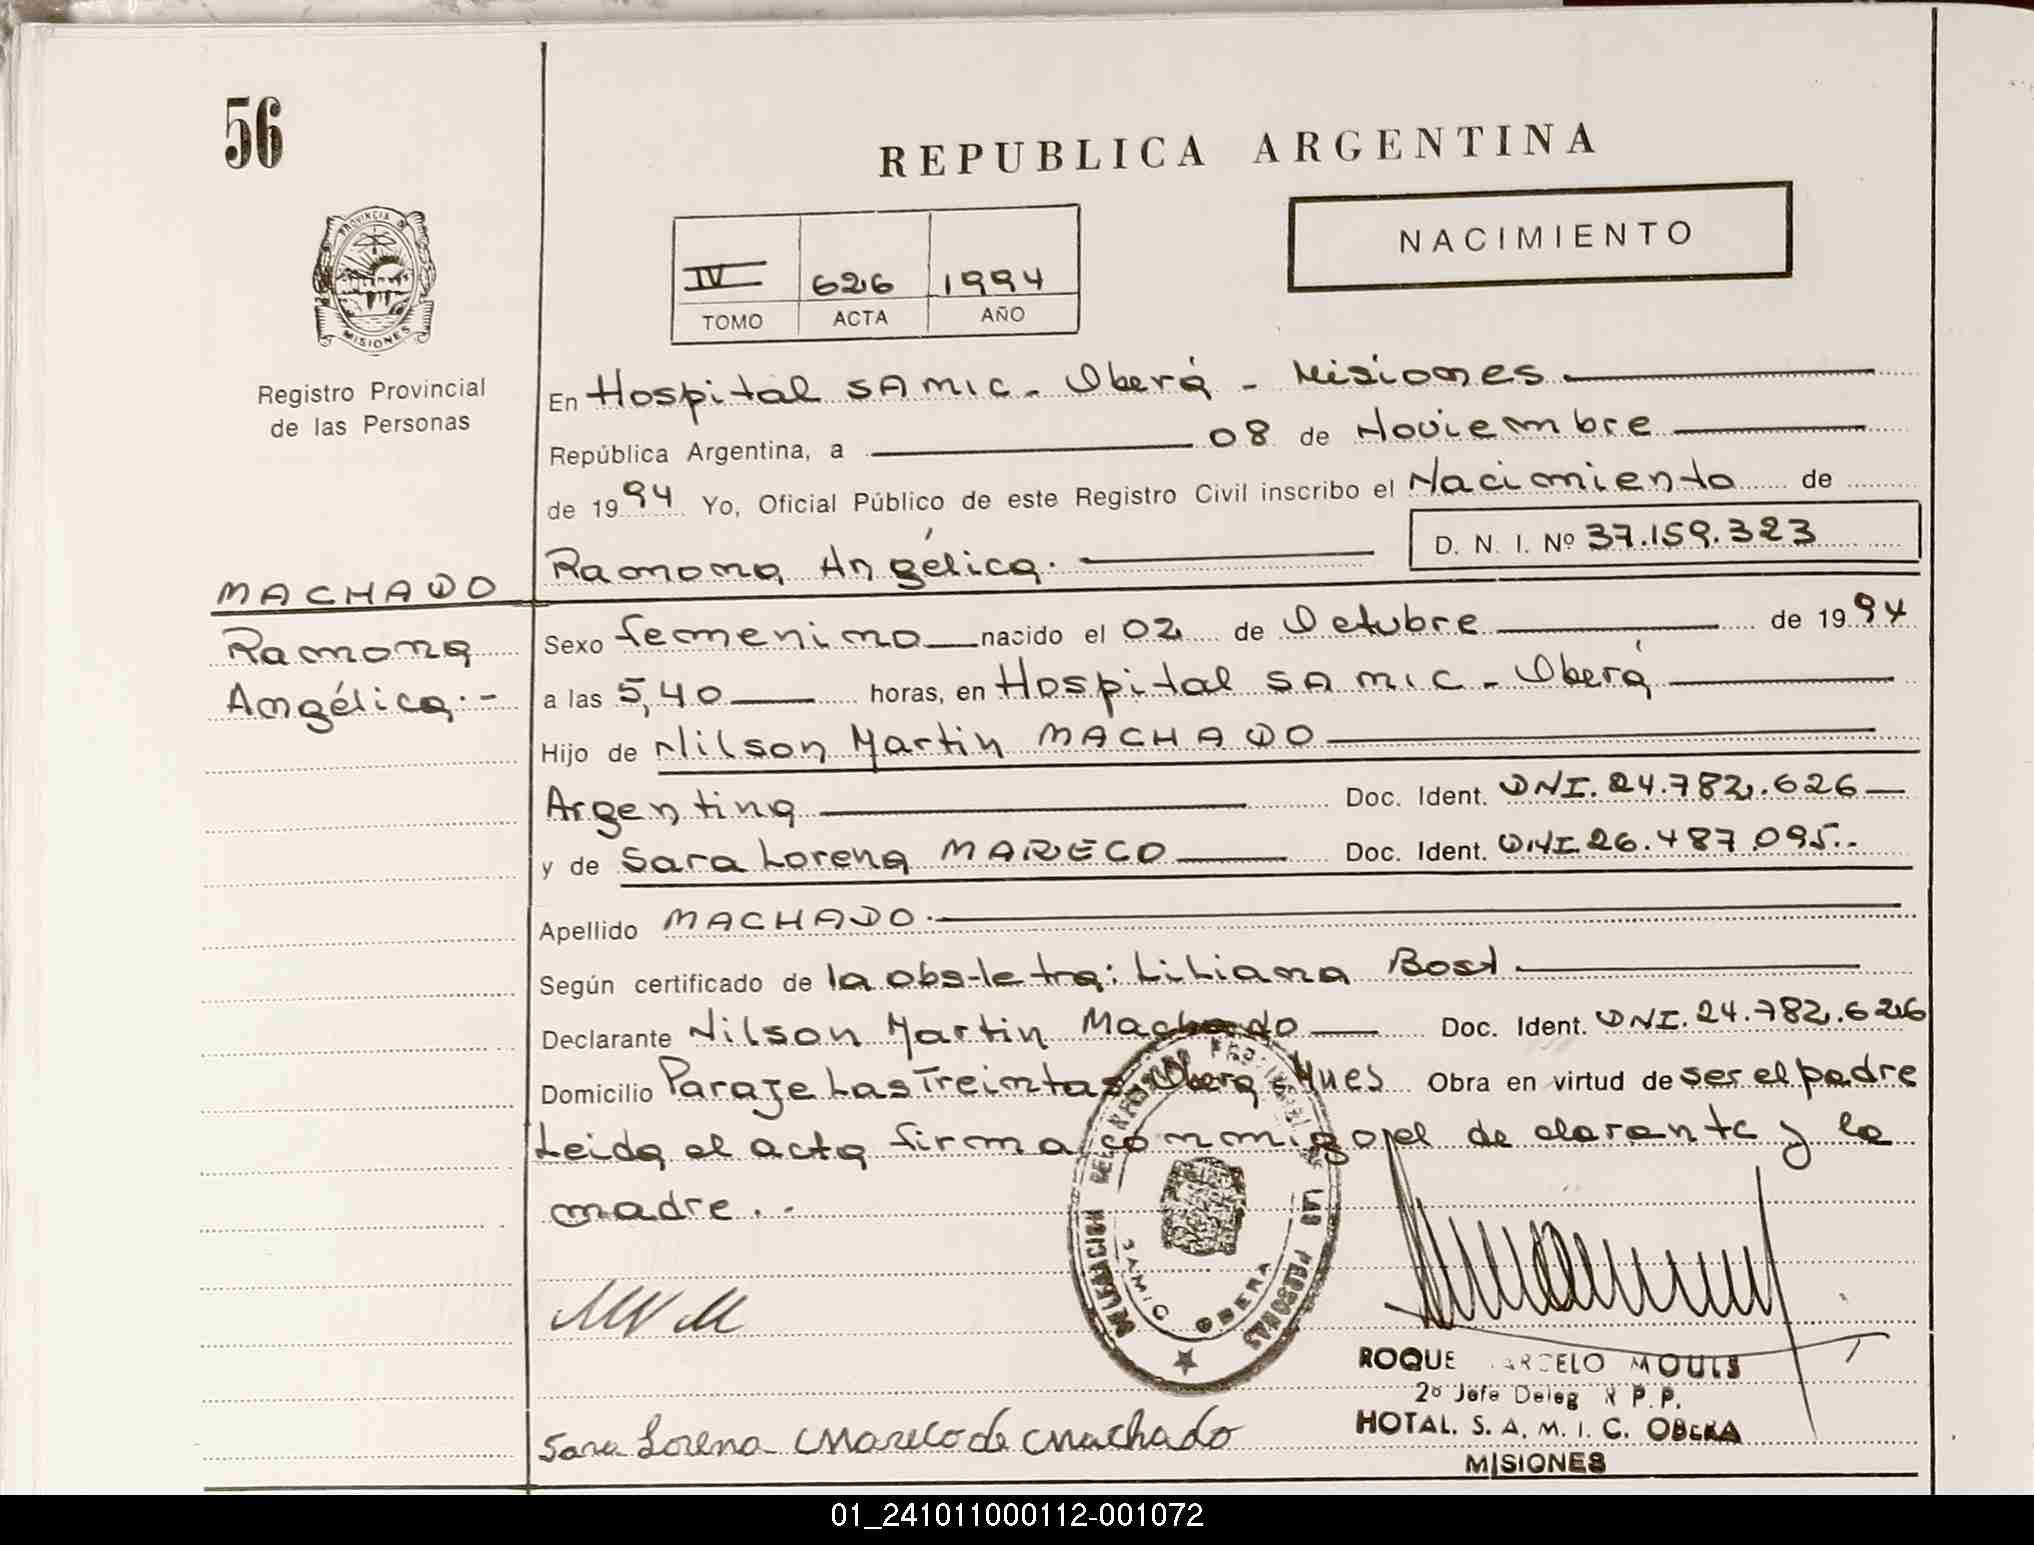 56
REPUBLICA ARGENTINA
NACIMIENTO
IV 626 1994
TOMO ACTA AÑO
PROVINCIA DE
MISIONES
Registro Provincial
de las Personas
En Hospital SAMIC - Oberá - Misiones
República Argentina, a 08 de Noviembre
de 1994 Yo, Oficial Público de este Registro Civil inscribo el Nacimiento de
Ramona Angélica. D. N. I. Nº 37.159.323
MACHADO
Ramona
Angélica.-
Sexo femenino nacido el 02 de Octubre de 1994
a las 5,40 horas, en Hospital SAMIC - Oberá
Hijo de Nilson Martin MACHADO
Argentina Doc. Ident. DNI. 24.782.626
y de Sara Lorena MARECO Doc. Ident. DNI. 26.487.095.-
Apellido MACHADO.
Según certificado de la obstetra: Liliana Bost
Declarante Nilson Martin Machado Doc. Ident. DNI. 24.782.626
Domicilio Paraje Las Treintas Oberá Mnes Obra en virtud de ser el padre
Leida el acta firma conmigo el declarante y la
madre.-
DELEGACION DEL REGISTRO PROVINCIAL DE LAS PERSONAS
SAMIC OBERA
Sara Lorena Mareco de Machado
ROQUE MARCELO MOULS
2º Jefe Deleg R P. P.
HOTAL. S. A. M. I. C. OBERA
MISIONES
01_241011000112-001072